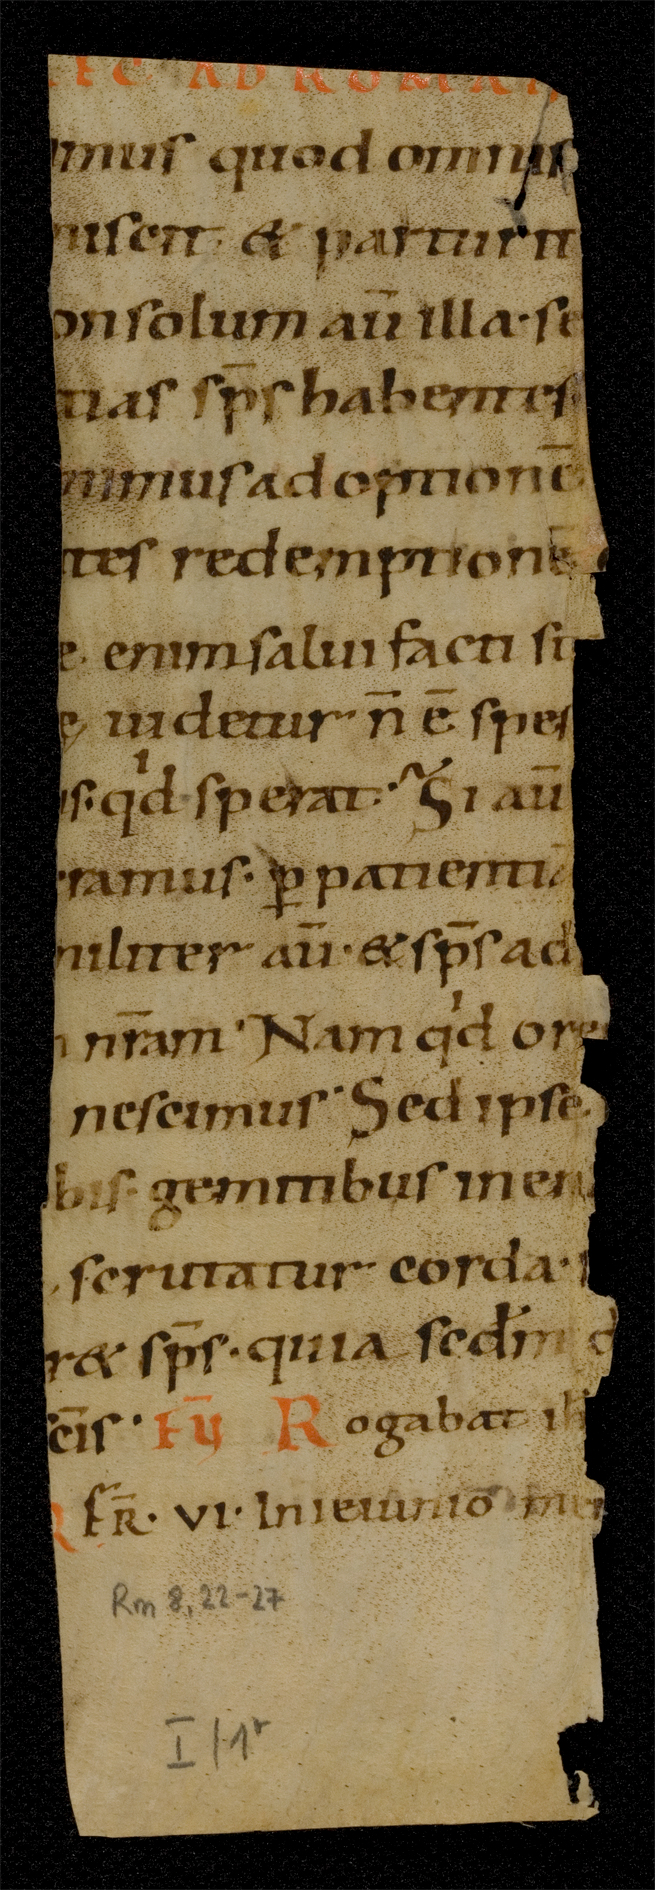 LEC AD ROMAN
imus quod omnis
miscit & parturit
on solum aū illa· se
tias sp̄s habentes
nimus adoptionē
ntes redemptionē
e· enim salui facti su
e uidetur n̄ ē spes
is· qd sperat· Si aū
ramus· p patientiā
militer aū· & sp̄s ad
n̄ram· Nam qd ore
nescimus· Sed ipse
bis· gemitibus inen
scrutatur corda·
r& sp̄s· quia scdm d
sc̄is· Eu̅ Rogabat
FR̄· VI· In ieiunio men
Rm 8, 22-27
I/1r